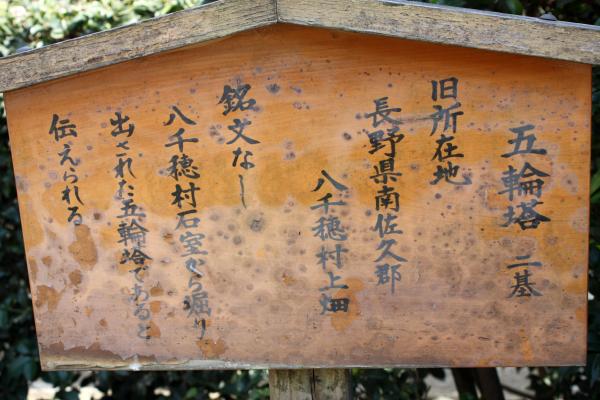 五輪塔 二基
旧所在地
長野県南佐久郡
八千穂村上畑
銘文なし
八千穂村石室から掘り
出された五輪塔であると
伝えられる